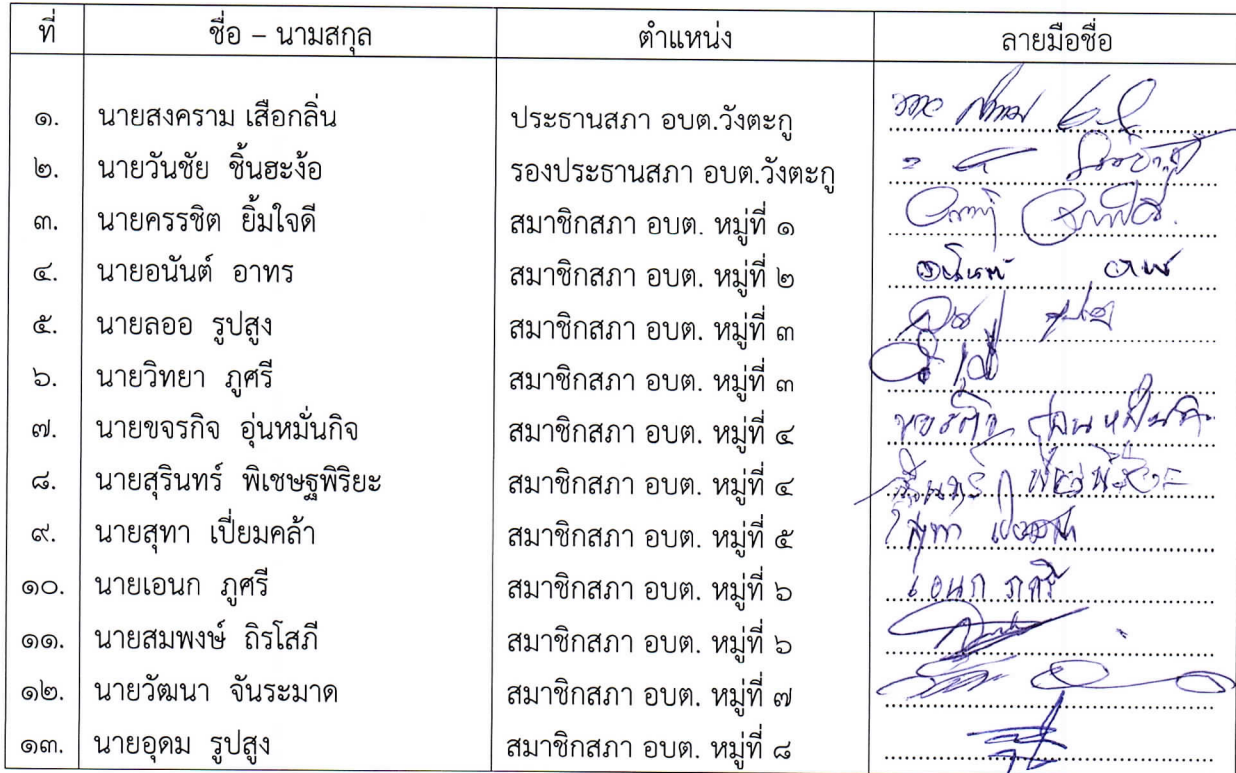 ที่ ชื่อ – นามสกุล ตำแหน่ง ลายมือชื่อ
๑. นายสงคราม เสือกลิ่น ประธานสภา อบต.วังตะกู
๒. นายวันชัย ชิ้นฮะง้อ รองประธานสภา อบต.วังตะกู
๓. นายครรชิต ยิ้มใจดี สมาชิกสภา อบต. หมู่ที่ ๑
๔. นายอนันต์ อาทร สมาชิกสภา อบต. หมู่ที่ ๒
๕. นายลออ รูปสูง สมาชิกสภา อบต. หมู่ที่ ๓
๖. นายวิทยา ภูศรี สมาชิกสภา อบต. หมู่ที่ ๓
๗. นายขจรกิจ อุ่นหมั่นกิจ สมาชิกสภา อบต. หมู่ที่ ๔
๘. นายสุรินทร์ พิเชษฐพิริยะ สมาชิกสภา อบต. หมู่ที่ ๔
๙. นายสุทา เปี่ยมคล้า สมาชิกสภา อบต. หมู่ที่ ๕
๑๐. นายเอนก ภูศรี สมาชิกสภา อบต. หมู่ที่ ๖ เอนก ภูศรี
๑๑. นายสมพงษ์ ถิรโสภี สมาชิกสภา อบต. หมู่ที่ ๖
๑๒. นายวัฒนา จันระมาด สมาชิกสภา อบต. หมู่ที่ ๗
๑๓. นายอุดม รูปสูง สมาชิกสภา อบต. หมู่ที่ ๘